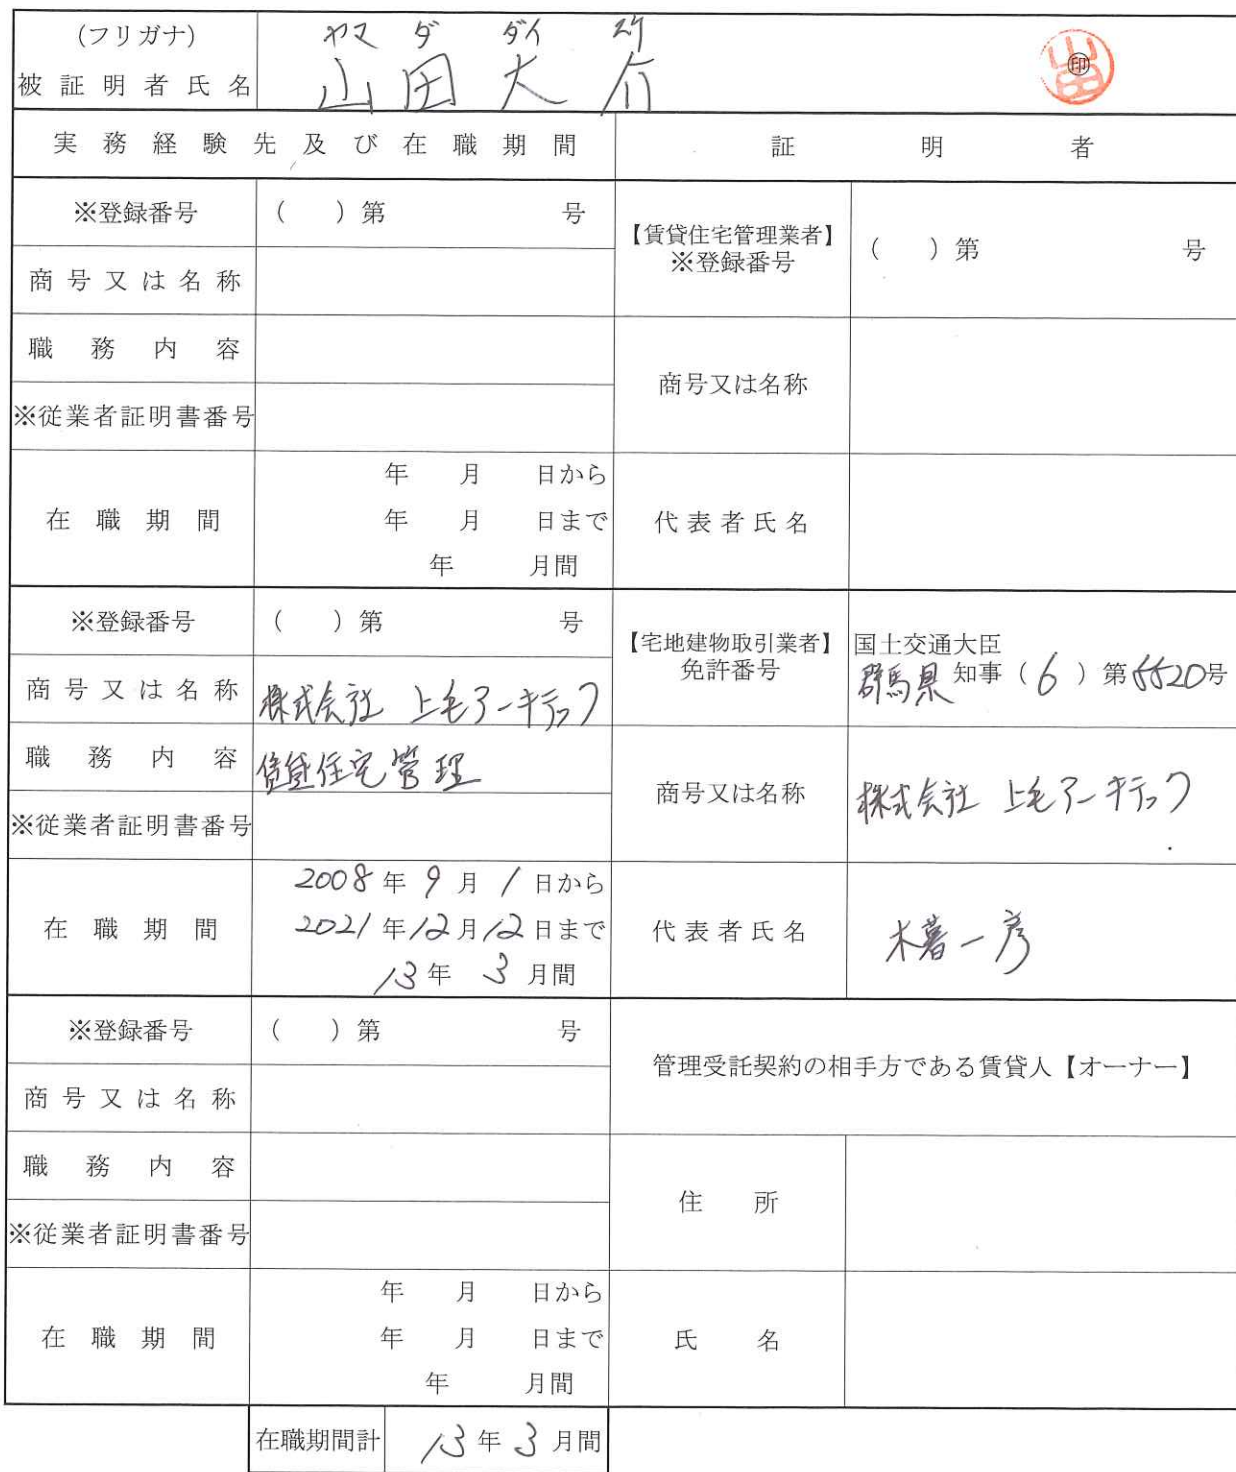 (フリガナ) ヤマ ダ ダイ スケ
被証明者氏名 山田大介 ㊞
実務経験先及び在職期間 証明者
※登録番号 ( )第 号
【賃貸住宅管理業者】
※登録番号 ( )第 号
商号又は名称
職務内容
商号又は名称
※従業者証明書番号
在職期間
年 月 日から
年 月 日まで
年 月間
代表者氏名
※登録番号 ( )第 号
【宅地建物取引業者】
免許番号
国土交通大臣
群馬県 知事(6)第5520号
商号又は名称 株式会社 上毛アーキテック
職務内容 賃貸住宅管理
商号又は名称 株式会社 上毛アーキテック
※従業者証明書番号
在職期間
2008年9月1日から
2021年12月12日まで
13年3月間
代表者氏名 木暮一彦
※登録番号 ( )第 号
管理受託契約の相手方である賃貸人【オーナー】
商号又は名称
職務内容
住所
※従業者証明書番号
在職期間
年 月 日から
年 月 日まで
年 月間
氏名
在職期間計 13年3月間